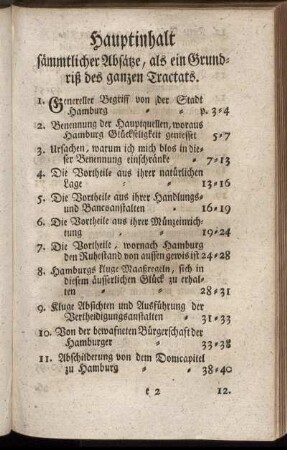 Hauptinhalt
sämmtlicher Absätze, als ein Grund-
riß des ganzen Tractats.
1. Genereller Begriff von der Stadt
Hamburg p. 3=4
2. Benennung der Hauptquellen, woraus
Hamburg Glückseligkeit geniesset 5=7
3. Ursachen, warum ich mich blos in die-
ser Benennung einschränke 7=13
4. Die Vortheile aus ihrer natürlichen
Lage 13=16
5. Die Vortheile aus ihrer Handlungs-
und Bancoanstalten 16=19
6. Die Vortheile aus ihrer Münzeinrich-
nung 19=24
7. Die Vortheile, wornach Hamburg
den Ruhestand von aussen gewis ist 24=28
8. Hamburgs kluge Maaßregeln, sich in
diesem äusserlichen Glück zu erhal-
ten 28=31
9. Kluge Absichten und Ausführung der
Vertheidigungsanstalten 31=33
10. Von der bewafneten Bürgerschaft der
Hamburger 33=38
11. Abschilderung von dem Domcapitel
zu Hamburg 38=40
2 12.